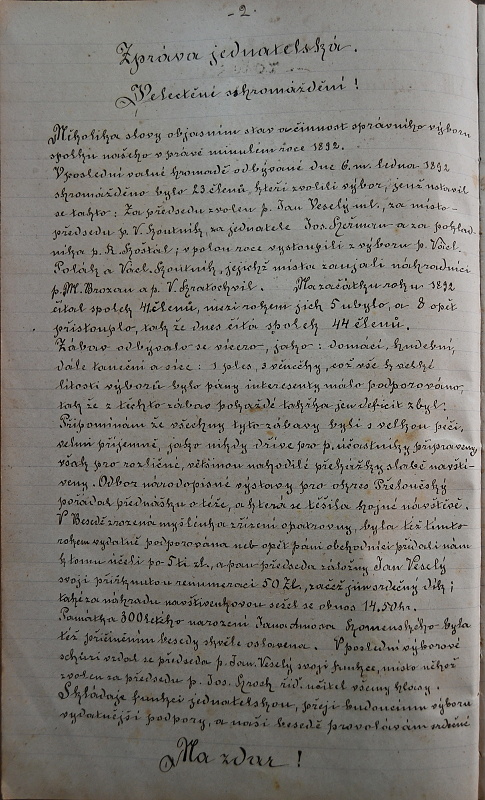 - 2. -
Zpráva jednatelská.
Velectěné shromáždění!
Několika slovy objasním stav a činnost správního výboru
spolku našeho v právě minulém roce 1892.
V poslední valné hromadě odbývané dne 6. m. ledna 1892
shromážděno bylo 23 členů, kteří zvolili výbor, jenž ustavil
se takto: Za předsedu zvolen p. Jan Veselý ml., za místo-
předsedu p. V. Koutník, za jednatele Jos. Heřman a za poklad-
níka p. R. Košťál; v polou roce vystoupili z výboru p. Václ.
Polák a Václ. Koutník, jejichž místa zaujali náhradníci
p. M. Brozan a p. V. Kratochvil. Na začátku roku 1892
čítal spolek 41 členů, mezi rokem jich 5 ubylo, a 8 opět
přistouplo, tak že dnes čítá spolek 44 členů.
Zábav odbývalo se vícero, jako: domácí, hudební,
dále taneční a sice: 1 ples, 3 věnečky, což vše k velké
lítosti výborů bylo pány interesenty málo podporováno,
tak že z těchto zábav pokaždé takřka jen deficit zbyl.
Připomínám že všechny tyto zábavy byli s velkou péčí,
velmi příjemně, jako nikdy dříve pro p. účastníky připraveny
však pro rozličné, většinou nahodilé překážky slabě navští-
veny. Odbor národopisné výstavy pro okres Přeloučský
pořádal přednášku o téže, a která se těšila hojné návštěvě.
V Besedě zrozená myšlenka zřízení opatrovny, byla též tímto
rokem vydatně podporována neb opět páni obchodníci přidali nám
k tomu účeli po 5ti zl., a pan předseda záložny Jan Veselý
svoji přiřknutou renumeraci 50 Zl., začež jim srdečný dík;
takéž náhradu navštívenkovou sešel se obnos 14,50 kr.
Památka 300letého narození Jana Amosa Komenského byla
též přičiněním besedy skvěle oslavena. V poslední výborové
schůzi vzdal se předseda p. Jan Veselý svojí funkce, místo něhož
zvolen za předsedu p. Jos. Hroch říd. učitel všemy hlasy.
Skládaje funkci jednatelskou, přeji budoucímu výboru
vydatnější podpory, a naší besedě provolávám srdečné
Na zdar!